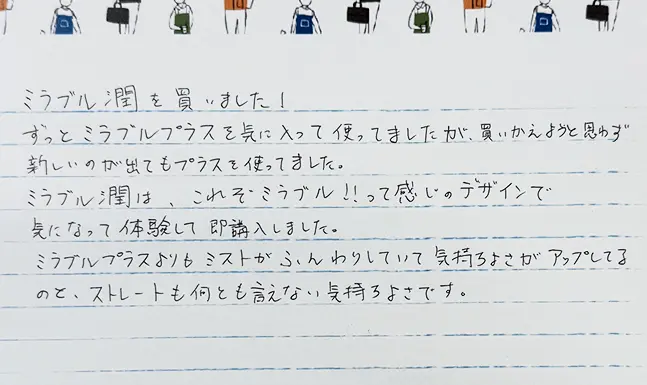 ミラブル潤を買いました!
ずっとミラブルプラスを気に入って使ってましたが、買いかえようと思わず
新しいのが出てもプラスを使ってました。
ミラブル潤は、これぞミラブル!!って感じのデザインで
気になって体験して即購入しました。
ミラブルプラスよりもミストがふんわりしていて気持ちよさがアップしてる
のと、ストレートも何とも言えない気持ちよさです。